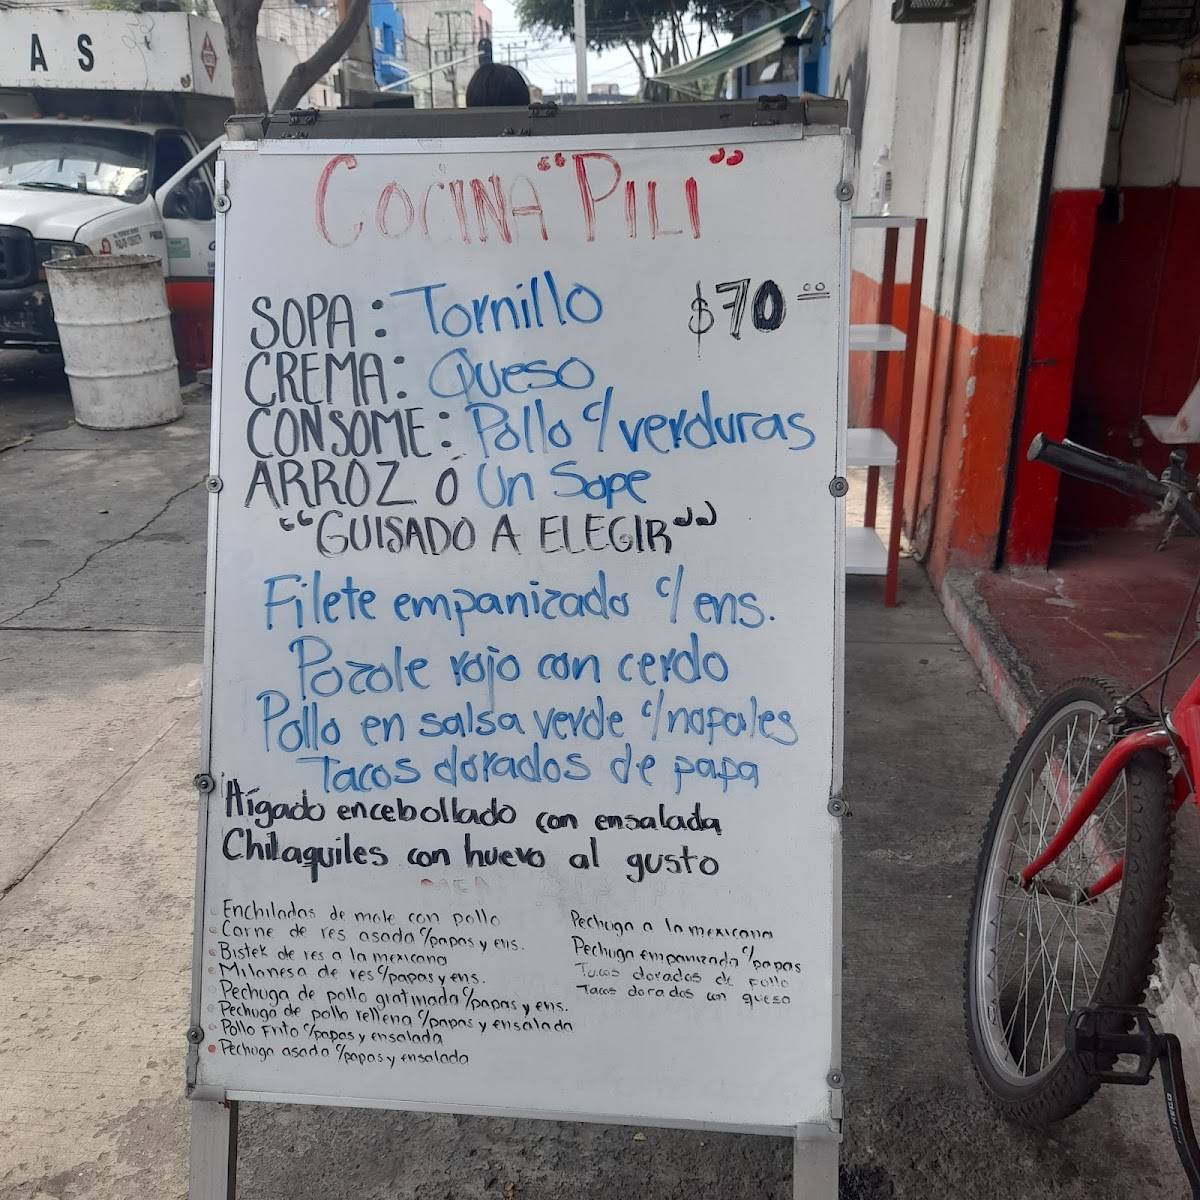 A S
COCINA "PILI"
SOPA: Tornillo $70.00
CREMA: Queso
CONSOME: Pollo c/verduras
ARROZ Ó Un Sope
"GUISADO A ELEGIR"
Filete empanizado c/ ens.
Pozole rojo con cerdo
Pollo en salsa verde c/nopales
Tacos dorados de papa
Hígado encebollado con ensalada
Chilaquiles con huevo al gusto
Enchiladas de mole con pollo
Carne de res asada c/papas y ens.
Bistek de res a la mexicana
Milanesa de res c/papas y ens.
Pechuga de pollo gratinada c/papas y ens.
Pechuga de pollo rellena c/papas y ensalada
Pollo Frito c/papas y ensalada
Pechuga asada c/papas y ensalada
Pechuga a la mexicana
Pechuga empanizada c/papas
Tacos dorados de pollo
Tacos dorados con queso